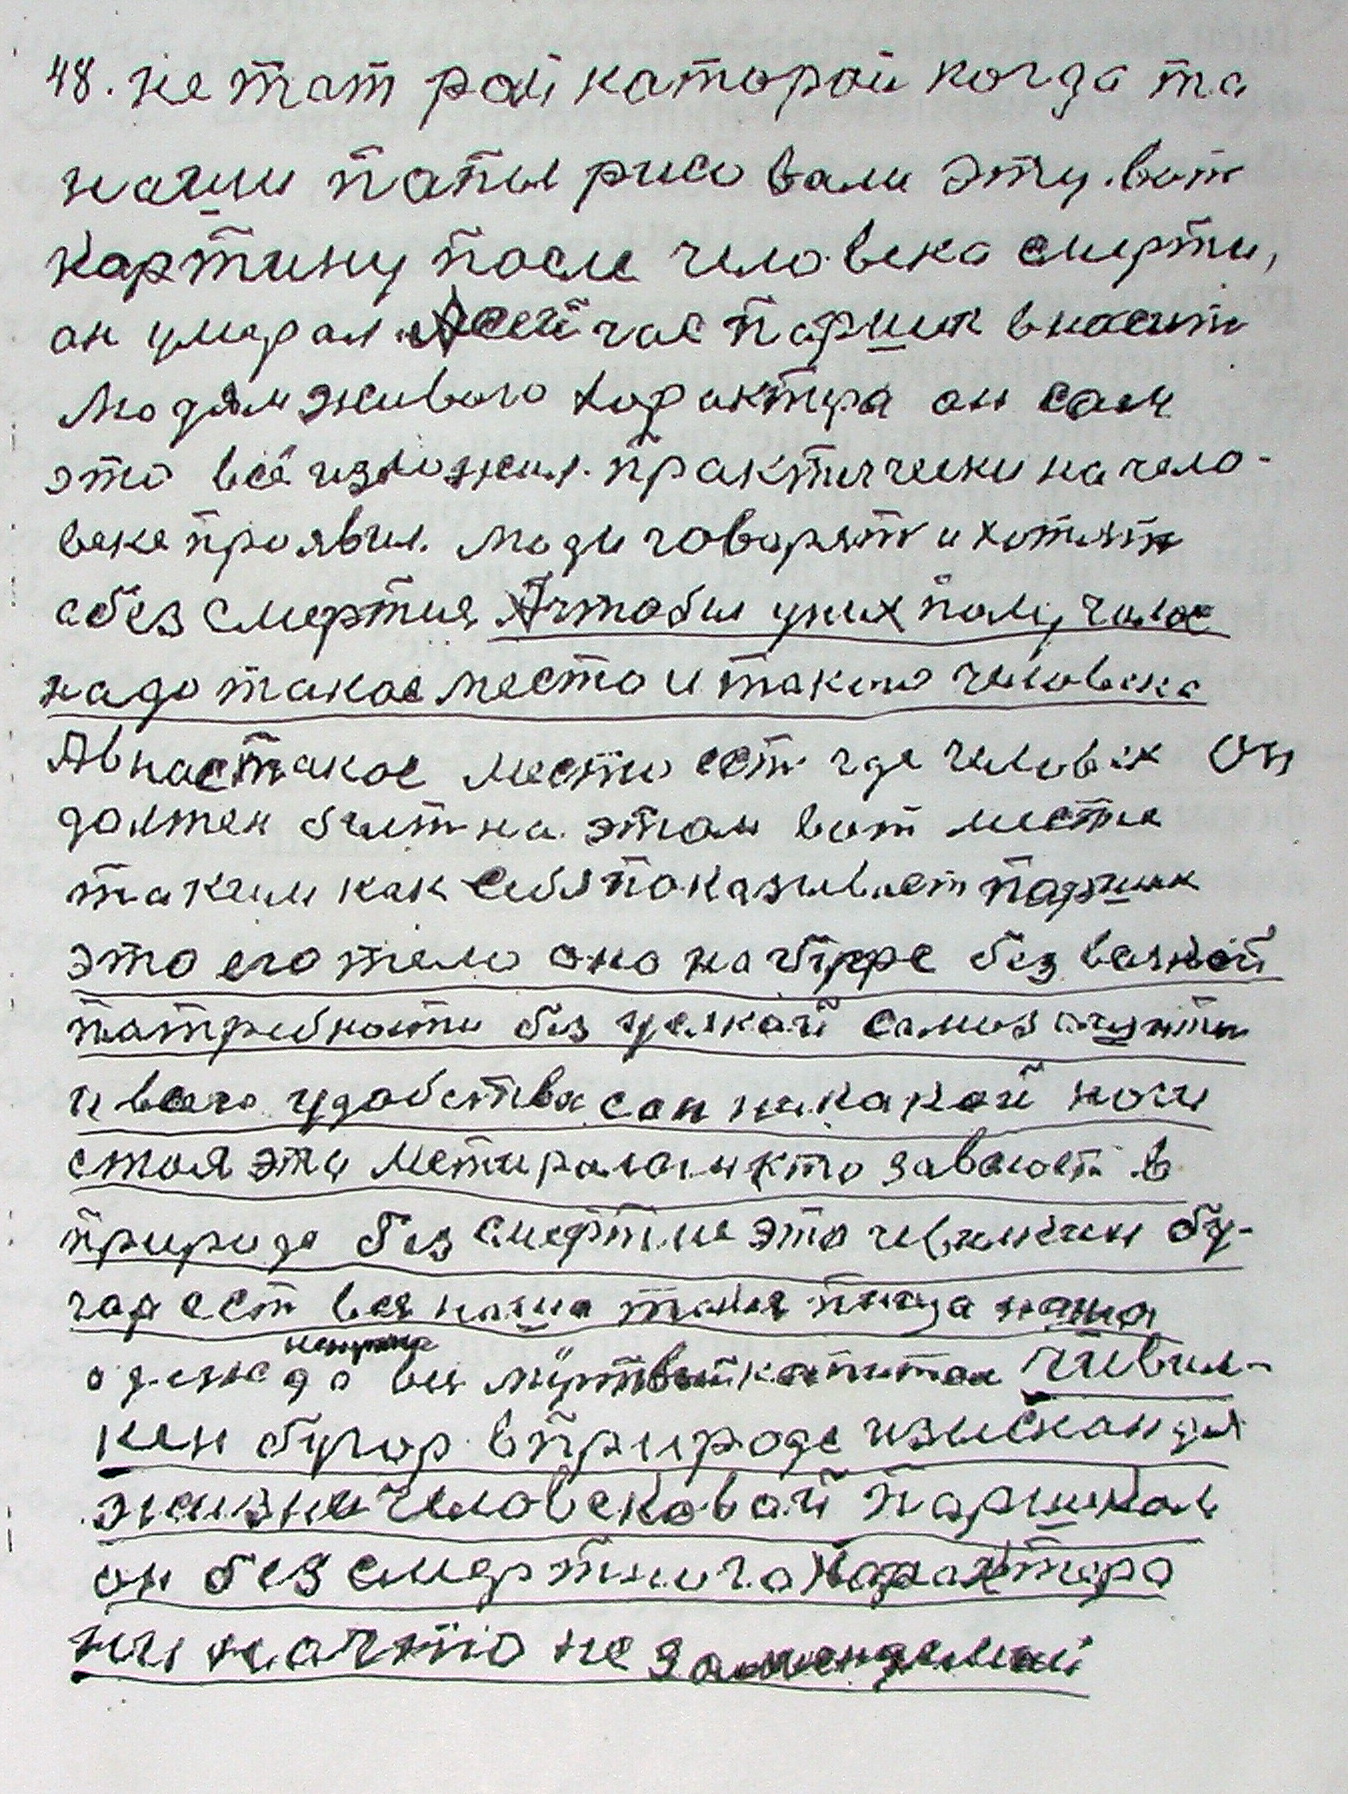 48. не тат рай каторай когда та
наши папы рисовали эту вот
картину после человека смерти,
он умерал. А сейчас паршик вносит
людям живого характера он сам
это всё изложил. практически на чело-
веке проявил. люди говарят и хотят
абез смертия. А чтобы у них палучалос
надо такое место и такого человека
А в нас такое место ест где человек он
должен быт на этом вот месте
таким как себя показывает паршик
это его тело оно на бугре без всякой
патребности без усякай самозащиты
и всего удобства сам никакой ночи
стоя эти никто завоюет в
природе без смертие это чивилкин бу-
гор ест вся наша таия пища наша
ненужна
одежда вы мёртвый капитал чивил-
кен бугор в природе изыскан для
жизни человековай паршиком
он без смертнига характера
ни на что не заменяемай